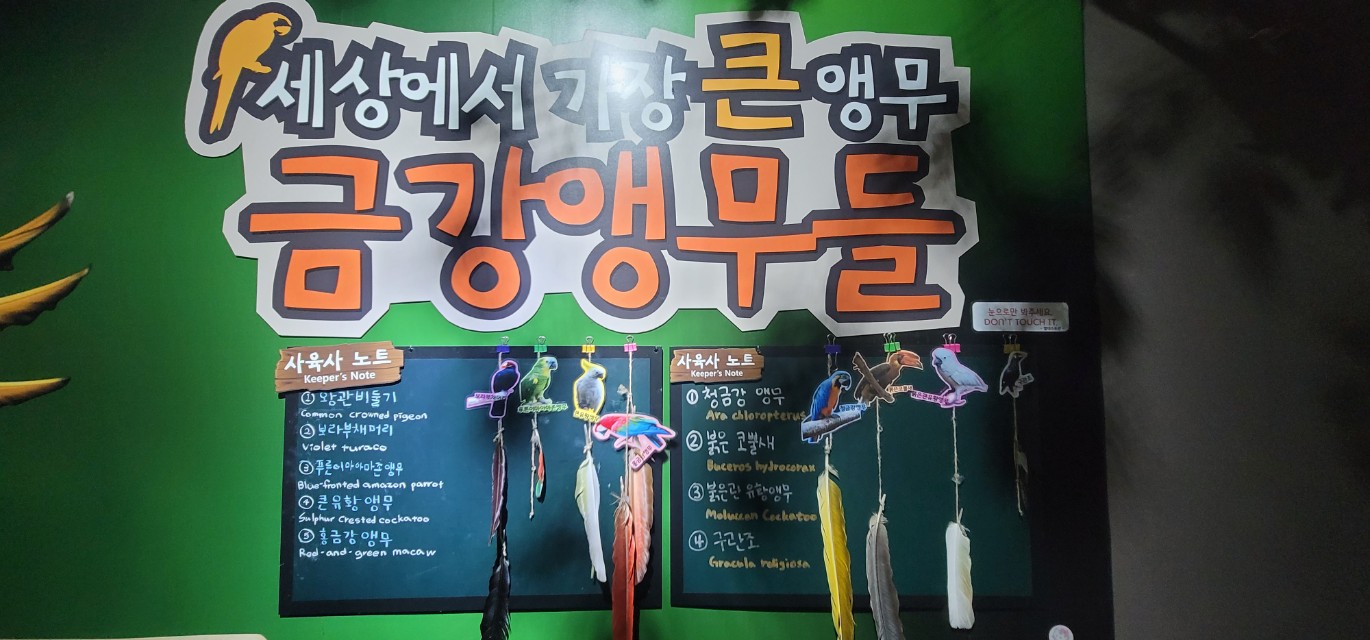 세상에서 가장 큰 앵무
금강앵무들
눈으로만 봐주세요.
DON'T TOUCH IT.
사육사 노트
Keeper's Note
① 왕관비둘기
Common crowned pigeon
② 보라부채머리
Violet turaco
③ 푸른이마아마존앵무
Blue-fronted amazon parrot
④ 큰유황앵무
Sulphur crested cockatoo
⑤ 홍금강앵무
Red-and-green macaw
사육사 노트
Keeper's Note
① 청금강 앵무
Ara chloropterus
② 붉은 코뿔새
Buceros hydrocorax
③ 붉은관 유황앵무
Moluccan Cockatoo
④ 구관조
Gracula religiosa